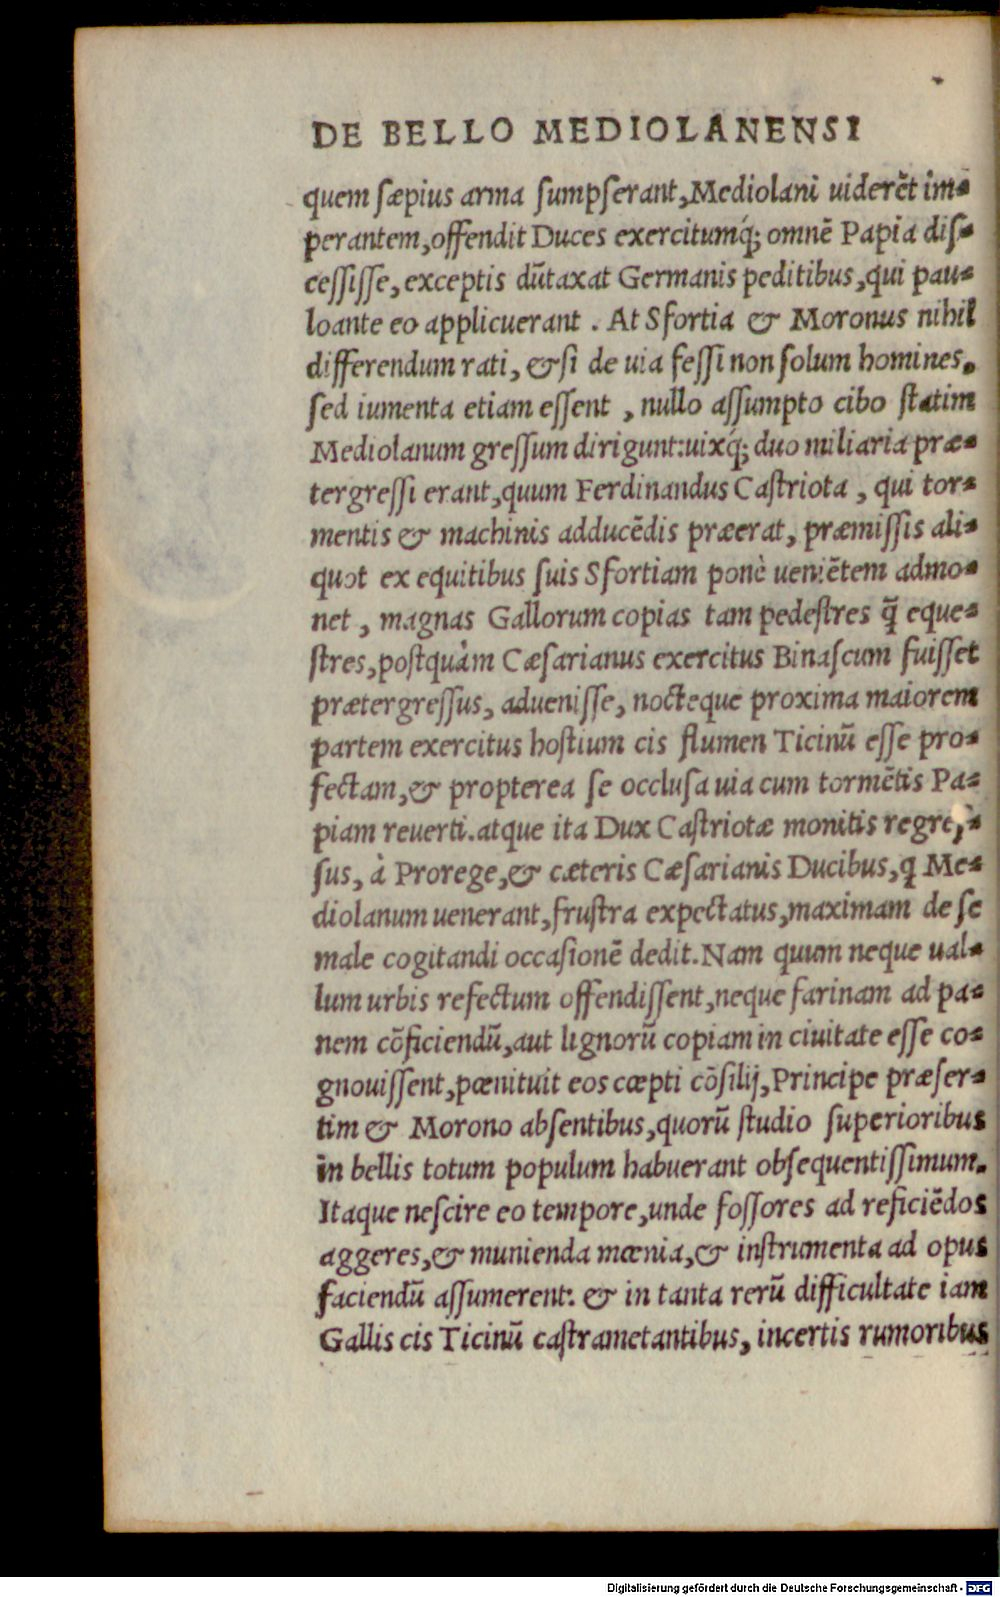 DE BELLO MEDIOLANENSI
quem sæpius arma sumpserant, Mediolani uiderēt im-
perantem, offendit Duces exercitumq́; omnē Papia dis-
cessisse, exceptis dūtaxat Germanis peditibus, qui pau-
loante eo applicuerant. At Sfortia & Moronus nihil
differendum rati, & si de uia fessi non solum homines,
sed iumenta etiam essent, nullo assumpto cibo statim
Mediolanum gressum dirigunt: uixq́; duo miliaria præ-
tergressi erant, quum Ferdinandus Castriota, qui tor-
mentis & machinis adducēdis præerat, præmissis ali-
quot ex equitibus suis Sfortiam ponè ueniētem admo-
net, magnas Gallorum copias tam pedestres q̃ eque-
stres, postquàm Cæsarianus exercitus Binascum fuisset
prætergressus, aduenisse, nocteque proxima maiorem
partem exercitus hostium cis flumen Ticinū esse pro-
fectam, & propterea se occlusa uia cum tormētis Pa-
piam reuerti. atque ita Dux Castriotæ monitis regres-
sus, à Prorege, & cæteris Cæsarianis Ducibus, q Me-
diolanum uenerant, frustra expectatus, maximam de se
male cogitandi occasionē dedit. Nam quum neque ual-
lum urbis refectum offendissent, neque farinam ad pa-
nem cōficiendū, aut lignorū copiam in ciuitate esse co-
gnouissent, pœnituit eos cœpti cōsilij, Principe præser-
tim & Morono absentibus, quorū studio superioribus
in bellis totum populum habuerant obsequentissimum.
Itaque nescire eo tempore, unde fossores ad reficiēdos
aggeres, & munienda mœnia, & instrumenta ad opus
faciendū assumerent: & in tanta rerū difficultate iam
Gallis cis Ticinū castrametantibus, incertis rumoribus
Digitalisierung gefördert durch die Deutsche Forschungsgemeinschaft - DFG